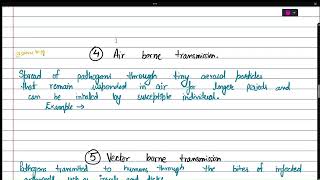 ④ Air borne transmission.
Spread of pathogens through tiny aerosol particles
that remain suspended in air for longer periods and
can be inhaled by susceptible individual.
Example →
⑤ Vector borne transmission
Pathogens transmitted to humans through the bites of infected
such as insects and ticks